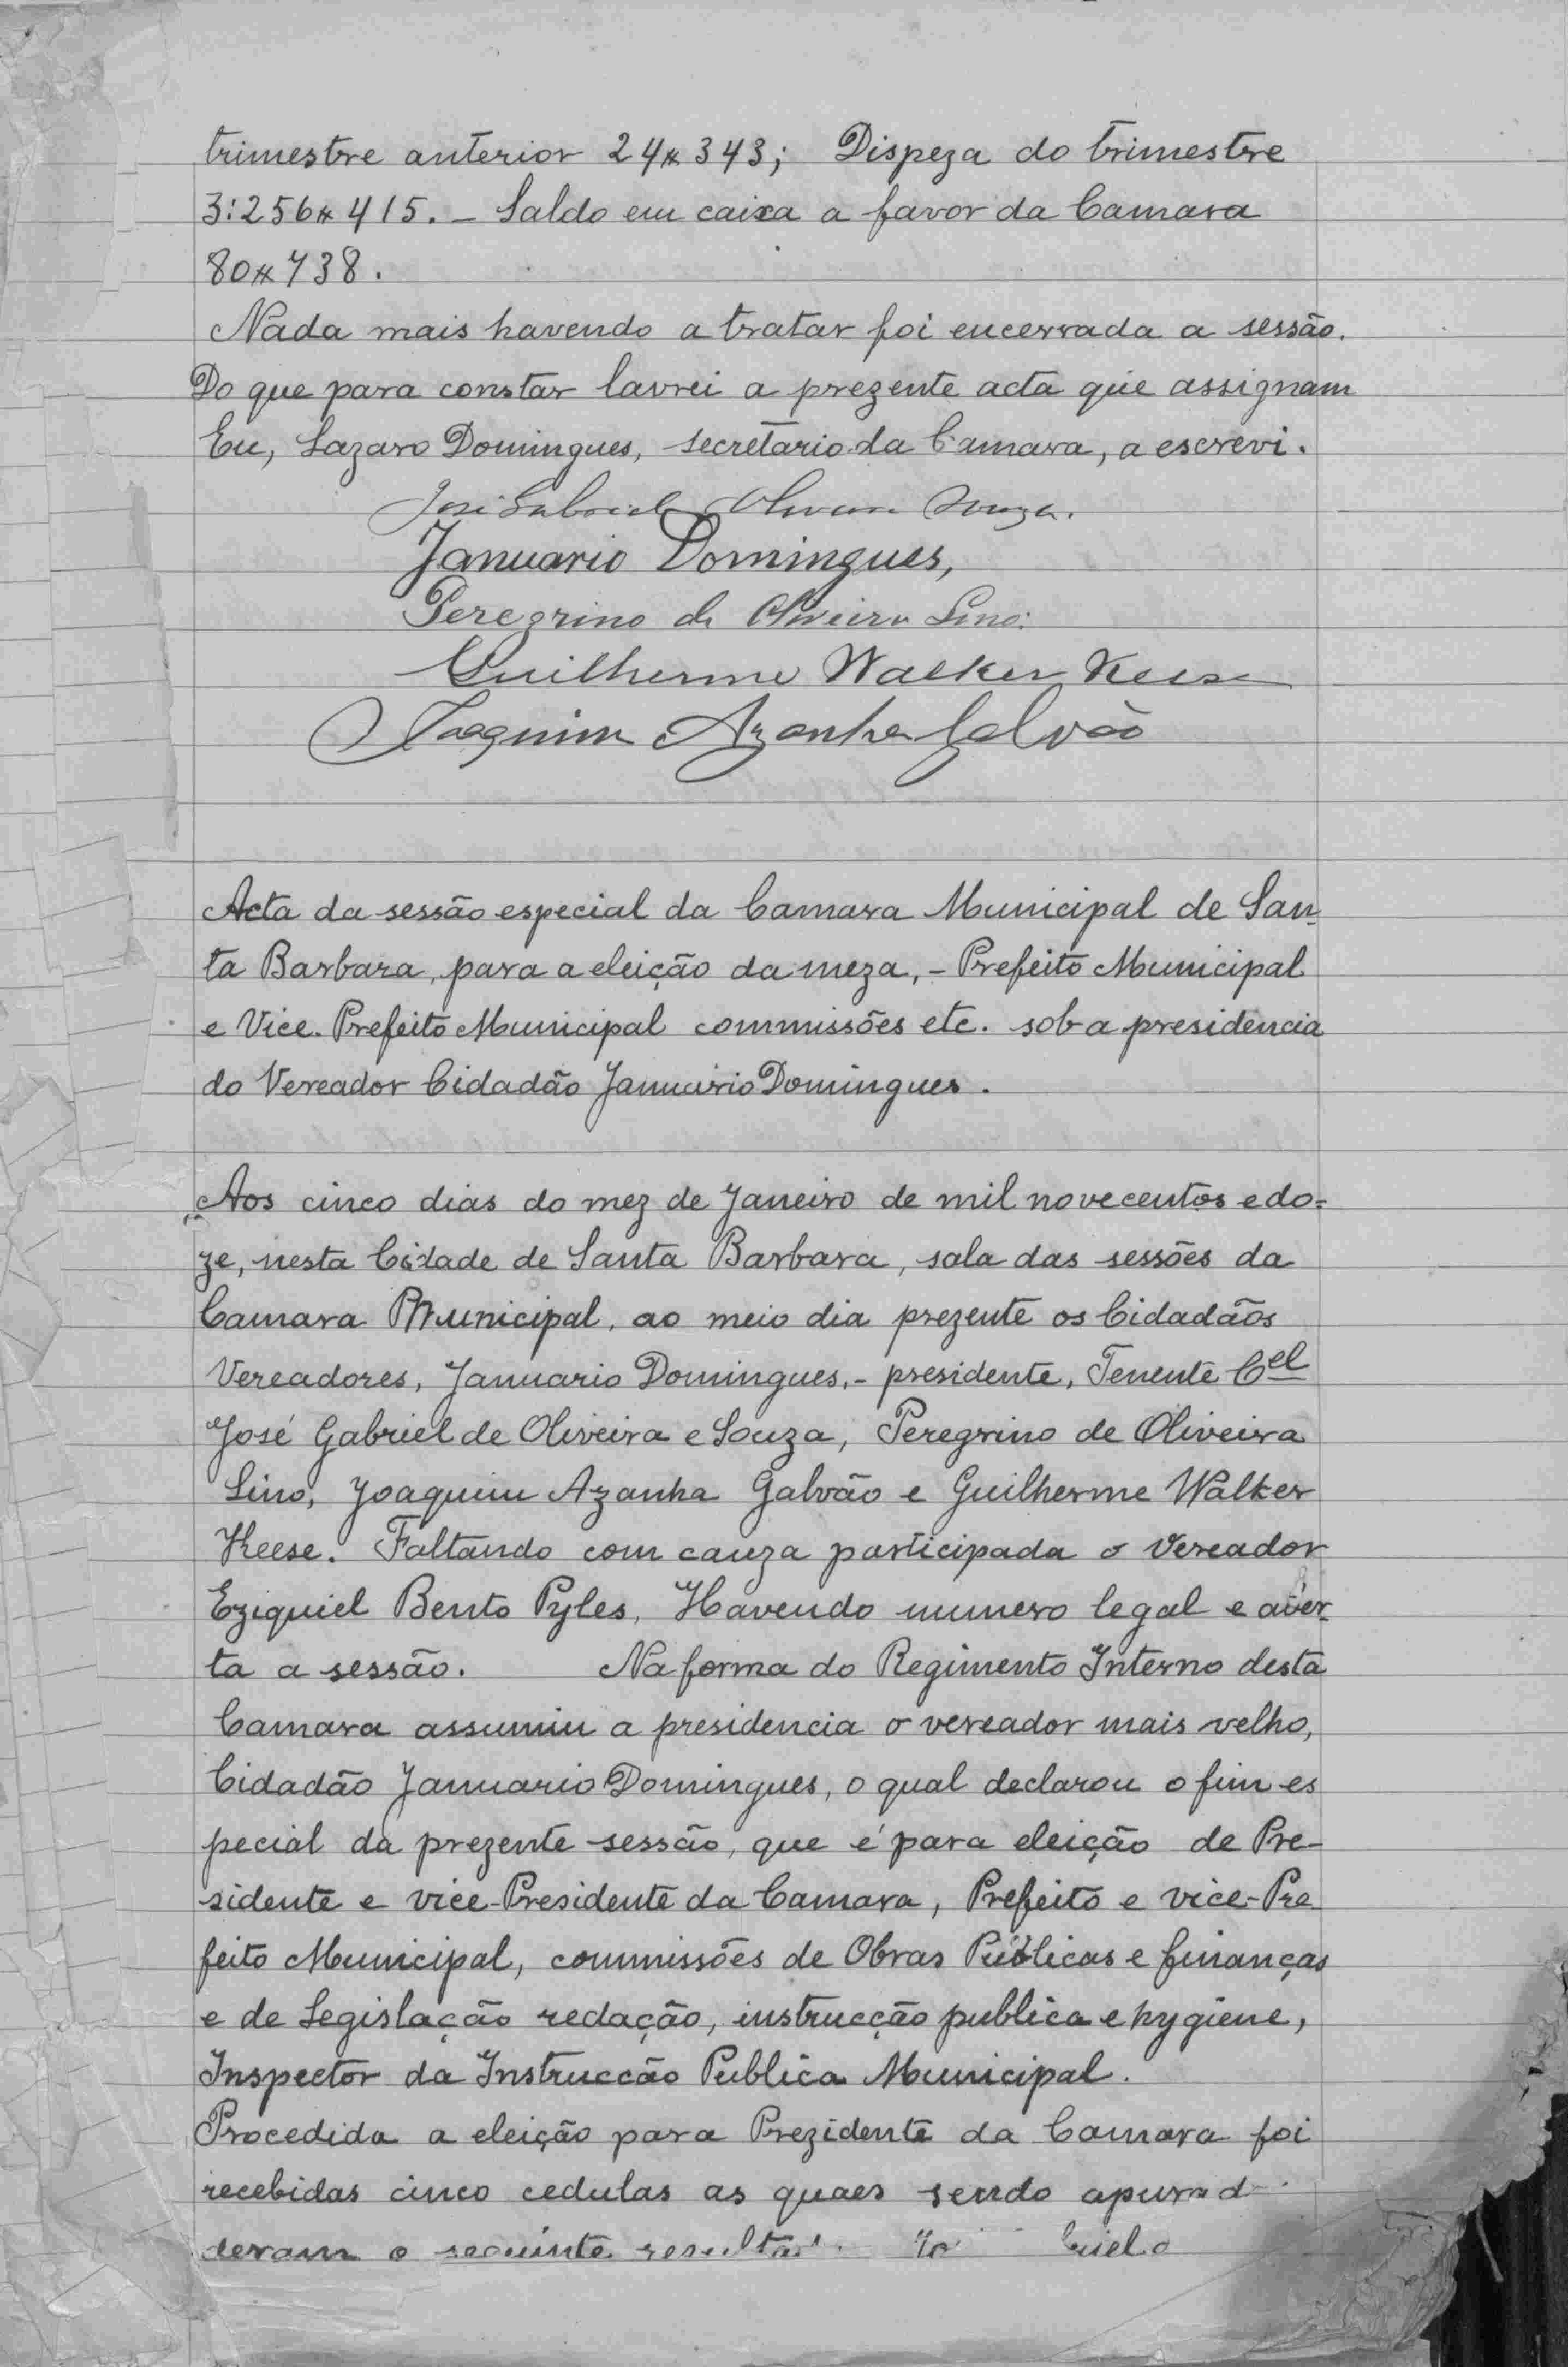 trimestre anterior 24$343; Dispeza do trimestre
3:256$415. _ Saldo em caixa a favor da Camara
80$738.
Nada mais havendo a tratar foi encerrada a sessão.
Do que para constar lavrei a prezente acta que assignam
Eu, Lazaro Domingues, secretario da Camara, a escrevi.
José Gabriel Oliveira Souza.
Januario Domingues,
Peregrino de Oliveira Lino.
Guilherme Walker Keese
Joaquim Azanha Galvão
Acta da sessão especial da Camara Municipal de San-
ta Barbara, para a eleição da meza, - Prefeito Municipal
e Vice. Prefeito Municipal commissões etc. sob a presidencia
do Vereador Cidadão Januario Domingues.
Aos cinco dias do mez de Janeiro de mil novecentos e do=
ze, nesta Cidade de Santa Barbara, sala das sessões da
Camara Municipal, ao meio dia prezente os Cidadãos
Vereadores, Januario Domingues, - presidente, Tenente Cel
José Gabriel de Oliveira e Souza, Peregrino de Oliveira
Lino, Joaquim Azanha Galvão e Guilherme Walker
Keese. Faltando com cauza participada o Vereador
Eziquiel Bento Pyles, Havendo numero legal e aber-
ta a sessão. Na forma do Regimento Interno desta
Camara assumiu a presidencia o vereador mais velho,
Cidadão Januario Domingues, o qual declarou o fim es
pecial da prezente sessão, que é para eleição de Pre-
sidente e vice-Presidente da Camara, Prefeito e vice-Pre
feito Municipal, commissões de Obras Publicas e finanças
e de Legislação redação, instrucção publica e hygiene,
Inspector da Instruccão Publica Municipal.
Procedida a eleição para Prezidente da Camara foi
recebidas cinco cedulas as quaes sendo apurad
deram o seguinte